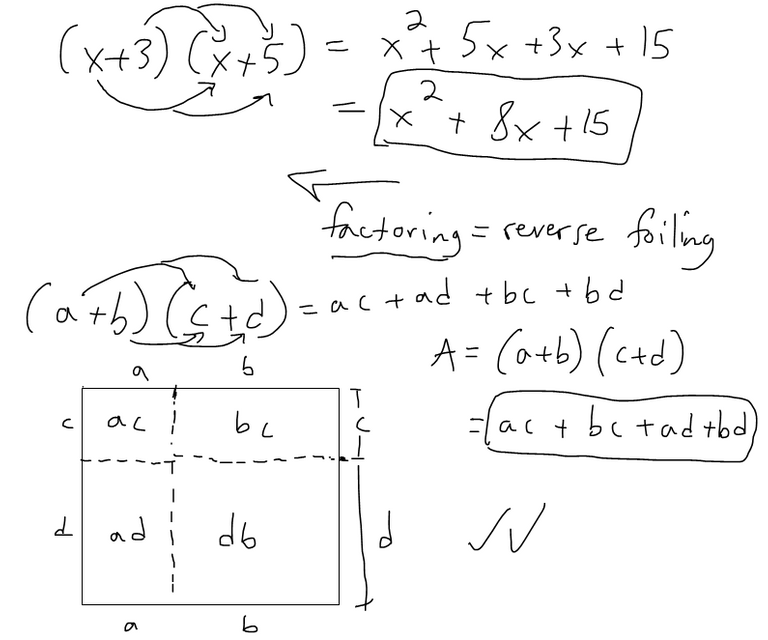 (x+3)(x+5) = x² + 5x + 3x + 15
= x² + 8x + 15
factoring = reverse foiling
(a+b)(c+d) = ac + ad + bc + bd
A = (a+b)(c+d)
= ac + bc + ad + bd
a b
c ac bc c
d ad db d
a b